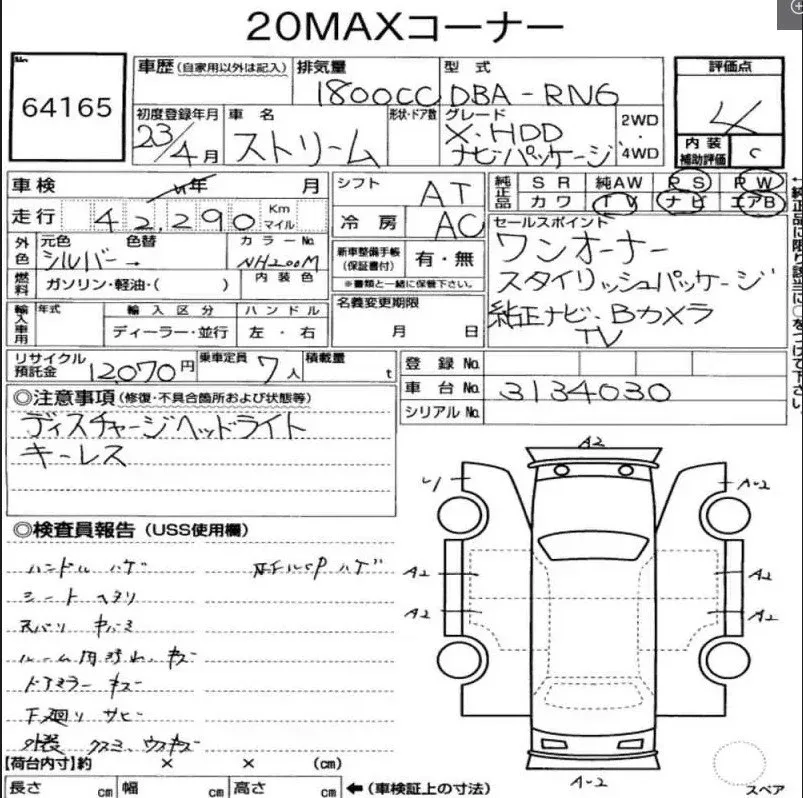 20MAXコーナー
No.
64165
車歴（自家用以外は記入）
排気量
1800CC
型式
DBA-RN6
評価点
4
初度登録年月
23/4月
車名
ストリーム
形状・ドア数
グレード
X・HDD
ナビパッケージ
2WD
・
4WD
内装
補助評価
C
車検
年
月
シフト
AT
純正品
SR
純AW
PS
PW
カワ
TV
ナビ
エアB
走行
42,290
Km
マイル
冷房
AC
外色
元色
シルバー
色替
→
カラーNo.
NH700M
セールスポイント
ワンオーナー
スタイリッシュパッケージ
純正ナビ・Bカメラ
TV
燃料
ガソリン・軽油・(　　)
内装色
新車整備手帳
（保証書付）
有・無
※書類と一緒に保管下さい。
輸入車用
年式
輸入区分
ディーラー・並行
ハンドル
左・右
名義変更期限
月
日
リサイクル
預託金
12,070円
乗車定員
7人
積載量
t
登録No.
車台No.
3134030
シリアルNo.
◎注意事項（修復・不具合箇所および状態等）
ディスチャージヘッドライト
キーレス
◎検査員報告（USS使用欄）
ハンドル ハゲ
シート ヘタリ
ルーム内汚れ、キズ
ドアミラー キズ
下廻り サビ
外装 クスミ、ウスキズ
A2
A-2
A2
A2
A2
A2
A-2
【荷台内寸】約
×
×
(cm)
長さ
cm
幅
cm
高さ
cm
←（車検証上の寸法）
スペア
←純正品に限り該当に○をつけて下さい。